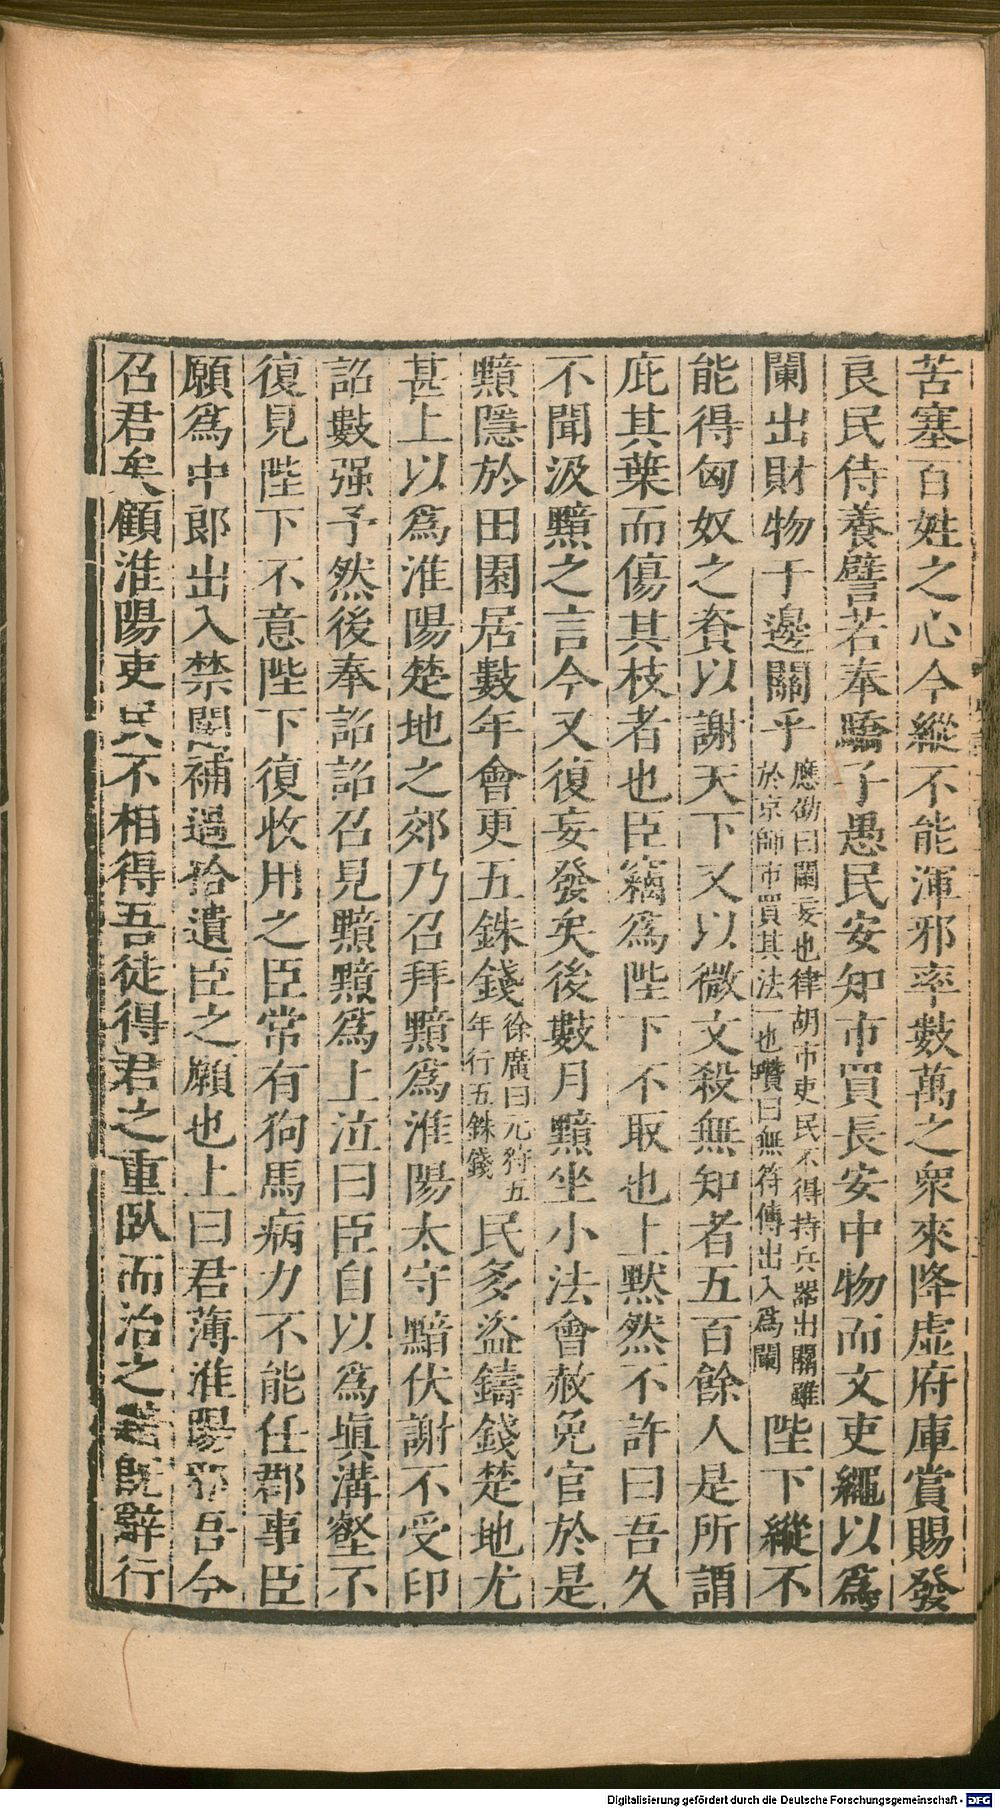 苦塞百姓之心今縱不能渾邪率數萬之衆來降虛府庫賞賜發
良民侍養譬若奉驕子愚民安知市買長安中物而文吏繩以爲
闌出財物于邊關乎應劭曰闌妄也律胡市吏民不得持兵器出關雖於京師市買其法一也瓚曰無符傳出入爲闌陛下縱不
能得匈奴之資以謝天下又以微文殺無知者五百餘人是所謂
庇其葉而傷其枝者也臣竊爲陛下不取也上默然不許曰吾久
不聞汲黯之言今又復妄發矣後數月黯坐小法會赦免官於是
黯隱於田園居數年會更五銖錢徐廣曰元狩五年行五銖錢民多盜鑄錢楚地尤
甚上以爲淮陽楚地之郊乃召拜黯爲淮陽太守黯伏謝不受印
詔數强予然後奉詔詔召見黯黯爲上泣曰臣自以爲塡溝壑不
復見陛下不意陛下復收用之臣常有狗馬病力不能任郡事臣
願爲中郎出入禁闥補過拾遺臣之願也上曰君薄淮陽邪吾今
召君矣顧淮陽吏民不相得吾徒得君之重臥而治之黯旣辭行
Digitalisierung gefördert durch die Deutsche Forschungsgemeinschaft - DFG